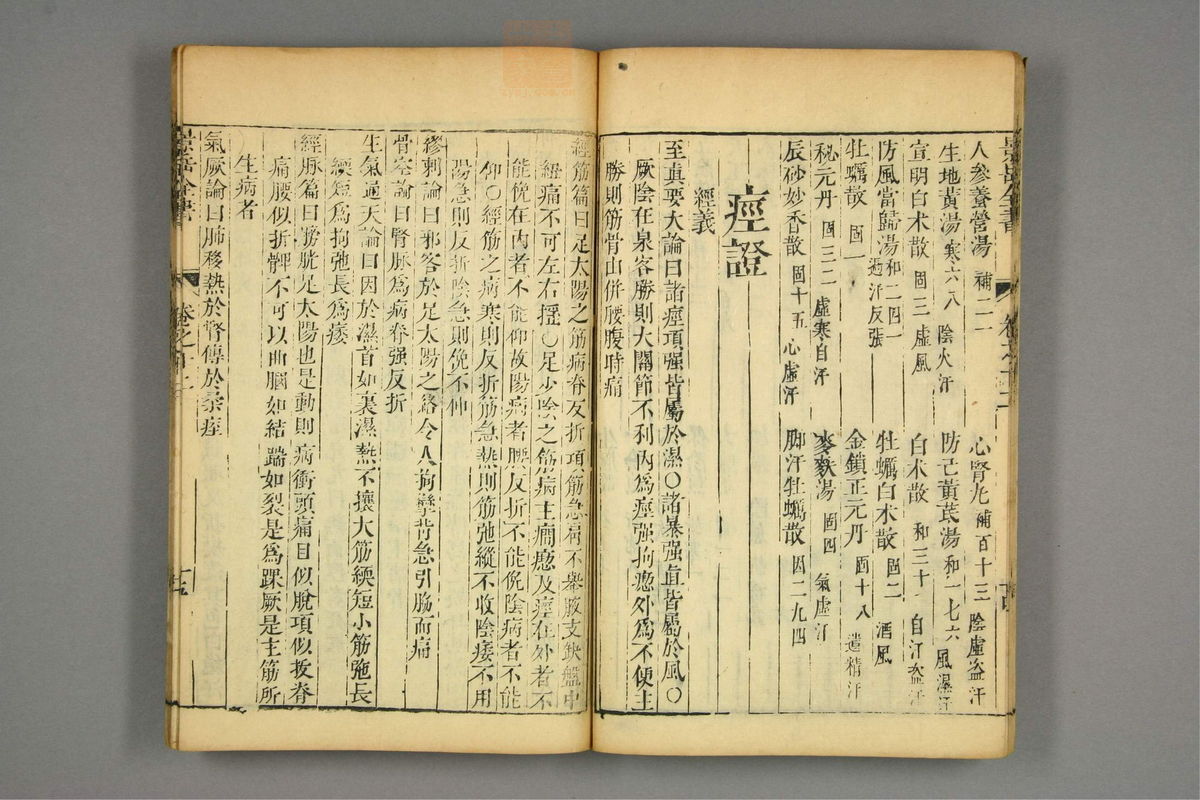 人參養營湯 補二一 心腎丸 補百十三 陰虛盜汗
生地黃湯 寒六八 陰火汗 防己黃芪湯 和一七六 風濕汗
宣明白术散 固三 虛風 白术散 和三十 自汗盜汗
防風當歸湯 和二四一 過汗反張 牡蠣白术散 固二 酒風
牡蠣散 固一 金鎖正元丹 固十八 遺精汗
秘元丹 固三二 虛寒自汗 麥麩湯 固四 氣虛汗
辰砂妙香散 固十五 心虛汗 脚汗牡蠣散 因二九四
痙證
經義
至眞要大論曰諸痙項强皆屬於濕○諸暴强直皆屬於風○
厥陰在泉客勝則大關節不利內爲痙强拘瘛外爲不便主
勝則筋骨山併腰腹時痛
經筋篇曰足太陽之筋病脊反折項筋急肩不舉腋支缺盆中
紐痛不可左右搖○足少陰之筋病主癇瘛及痙在外者不
能俛在內者不能仰故陽病者腰反折不能俛陰病者不能
仰○經筋之病寒則反折筋急熱則筋弛縱不收陰痿不用
陽急則反折陰急則俛不伸
繆刺論曰邪客於足太陽之絡令人拘攣背急引脇而痛
骨空論曰督脉爲病脊强反折
生氣通天論曰因於濕首如裹濕熱不攘大筋緛短小筋弛長
緛短爲拘弛長爲痿
經脉篇曰膀胱足太陽也是動則病衝頭痛目似脫項似拔脊
痛腰似折髀不可以曲膕如結踹如裂是爲踝厥是主筋所
生病者
氣厥論曰肺移熱於腎傳於柔痓
景岳全書